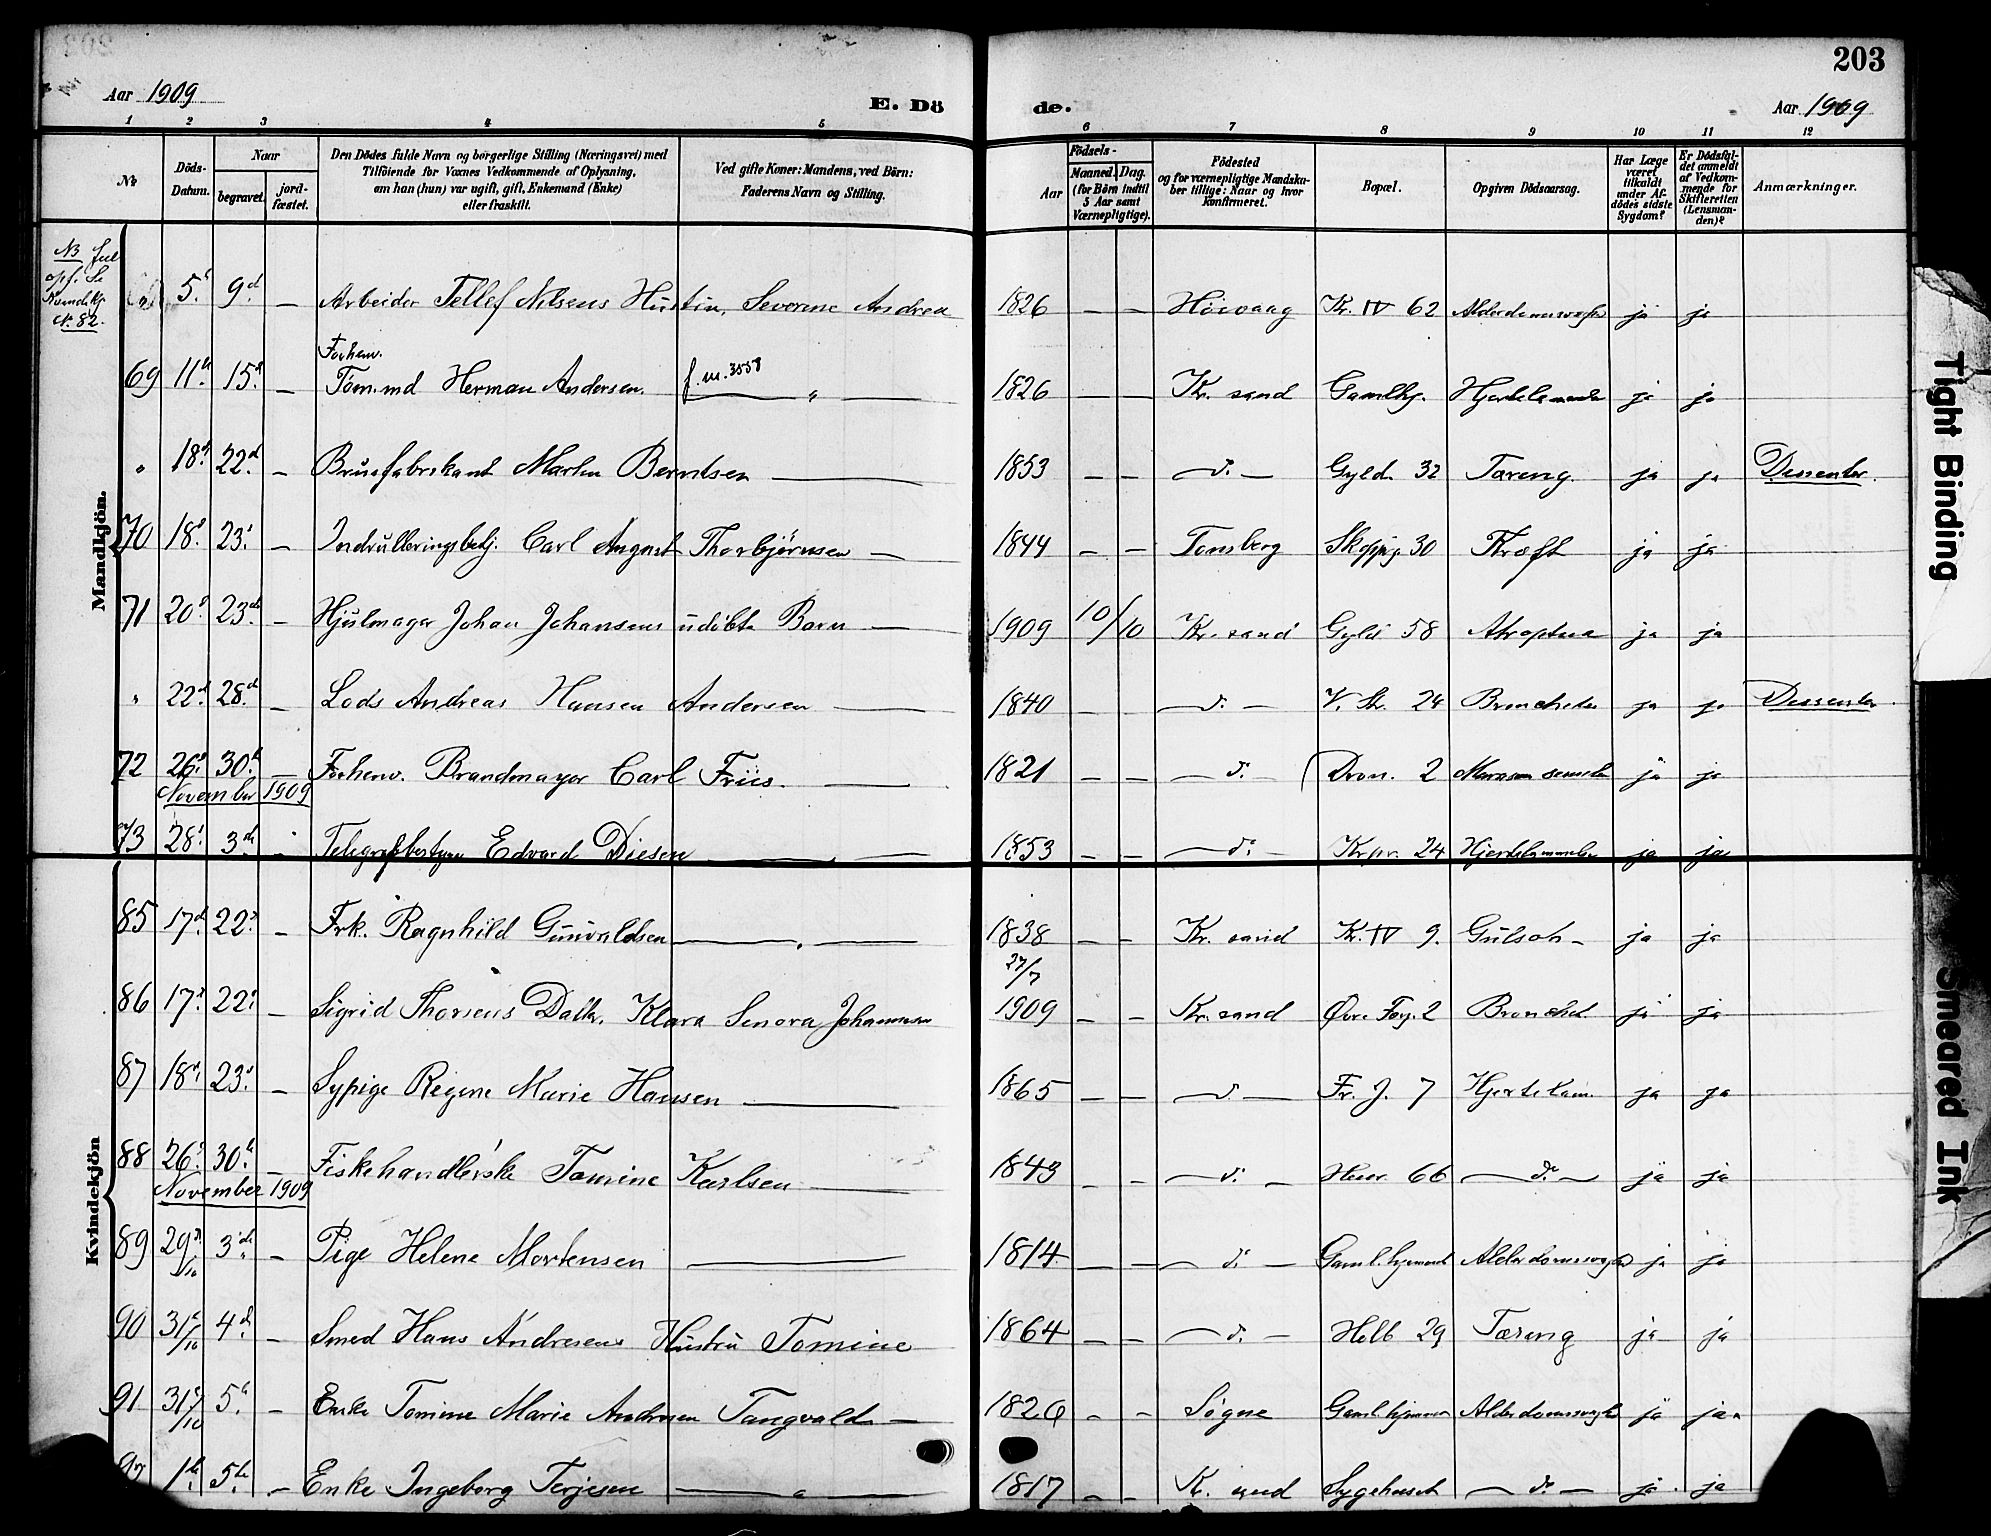 203
Aar 1909 E. Dö de. Aar 1909
1 2 3 4 5 6 7 8 9 10 11 12
No. Döds-Datum. Naar begravet. jord-fæstet. Den Dödes fulde Navn og borgerlige Stilling (Næringsvei) med Tilföiende for Voxnes Vedkommende af Oplysning, om han (hun) var ugift, gift, Enkemand (Enke) eller fraskilt. Ved gifte Koner: Mandens, ved Börn: Faderens Navn og Stilling. Födsels- Aar Maaned. Dag. (for Börn indtil 5 Aar samt Værnepligtige). Födested og for værnepligtige Mandska-ber tillige: Naar og hvor konfirmeret. Bopæl. Opgiven Dödsaarsag. Har Læge været tilkaldt under Af-dödes sidste Sygdom? Er Dödsfal-det anmeldt af Vedkom-mende for Skifteretten (Lensman-den)? Anmærkninger.
NB feil opf. Se Kvindekj. No. 82.
Mandkjön.
5 9d – Arbeider Tellef Nilsens Hustru, Severine Andrea 1826 – – Höivaag Kr. IV 62 Alderdomssvaghed ja ja
69 11te 15d – Forhenv. Töm.md Herman Andersen. f. m. 3558 " 1826 – – Kr. sand Gamlhj. Hjertelammelse ja ja
" 18d 22d – Brusfabrikant Martin Berntsen 1853 – – do – Gyld. 32 Tæring. ja ja Dissenter.
70 18d 23d – Indrulleringsbetj. Carl August Thorbjørnsen – 1844 – – Tonsberg Skippg. 30 Kræft ja ja
71 20d 23de – Hjulmager Johan Johansens udöbte Barn – 1909 10/10 Kr. sand Gyld 58 Atrophia ja ja
" 22d 28d – Lods Andreas Hansen Andersen 1840 – – do – V. Str. 24 Bronchitis ja ja Dissenter
72 26d 30te – Forhenv. Brandmayor Carl Friis. 1821 – – do – Dron. 2 Marasmus senilis ja ja
November 1909
73 28d 3de – Telegrafbestyrer Edvard Diesen 1853 – – do – Krpr. 24 Hjertelammelse ja ja
Kvindekjön
85 17d 22d – Frk. Ragnhild Gunvaldsen 1838 – – Kr. sand Kr. IV 9. Gulsot – ja ja
86 17d 22d – Sigrid Thorsens Datter, Klara Senora Johannesen 27/7 1909 – – Kr. sand Øvre Torv. 2 Bronchit. ja ja
87 18d 23d – Sypige Regine Marie Hansen 1865 – – do – Fr. J. 7 Hjertelam. ja ja
88 26d 30te – Fiskehandlerske Tomine Karlsen 1843 – – do – Henr. 66 do – ja ja
November 1909
89 29d/10 3de – Pige Helene Mortensen 1814 – – do – Gaml.hjemmet Alderdomssvaghed ja ja
90 31te/10 4de – Smed Hans Andresens Hustru Tomine 1864 – – do – Holb 29 Tæring ja ja
91 31te/10 5te – Enke Tomine Marie Andresen Tangvald – 1826 – – Søgne Gaml.hjemmet Alderdomssvaghed ja ja
92 1te 5te – Enke Ingeborg Terjesen " 1817 – – Kr. sand Sygehuset do – ja ja
Tight Binding
Smeared Ink